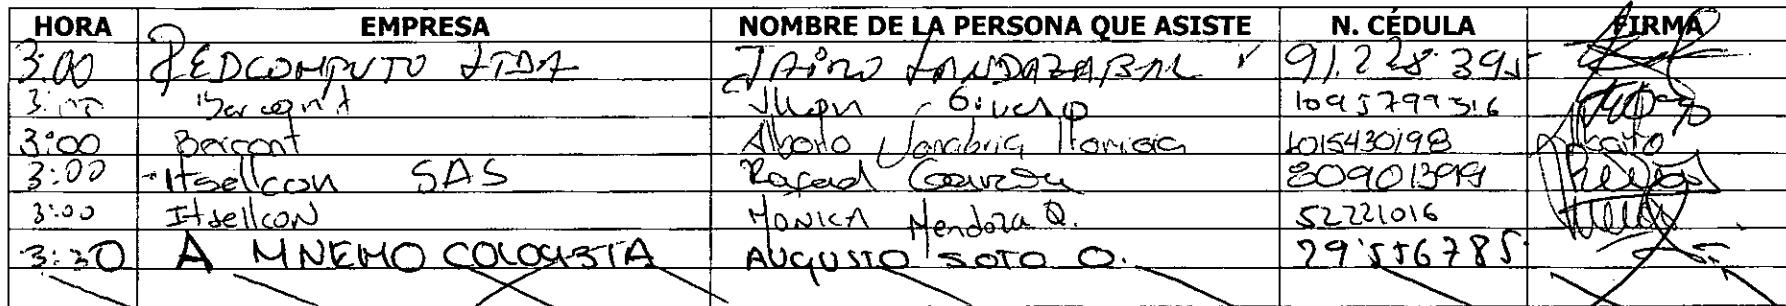 HORA EMPRESA NOMBRE DE LA PERSONA QUE ASISTE N. CÉDULA FIRMA
3:00 REDCOMPUTO LTDA JAIRO LANDAZABAL 91.228.395
3:00 Bercont Juan 1095799316
3:00 Bercont Alberto Sanabria 1015430198
3:00 Itsellcon SAS Rafael Garzon 80901399
3:00 Itsellcon MONICA Mendoza Q. 52221016
3:30 A MNEMO COLOMBIA AUGUSTO SOTO O. 79'556785